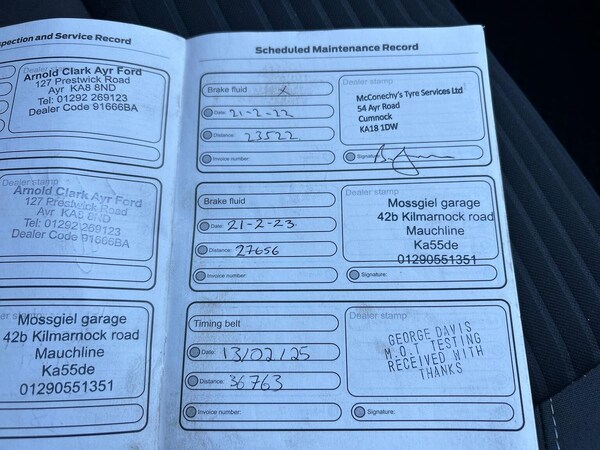 spection and Service Record
Arnold Clark Ayr Ford
127 Prestwick Road
Ayr KA8 8ND
Tel: 01292 269123
Dealer Code 91666BA
Dealer stamp
Arnold Clark Ayr Ford
127 Prestwick Road
Ayr KA8 8ND
Tel: 01292 269123
Dealer Code 91666BA
Dealer stamp
Mossgiel garage
42b Kilmarnock road
Mauchline
Ka55de
01290551351
Scheduled Maintenance Record
Brake fluid x
Date: 21-2-22
Distance: 23522
Invoice number:
Dealer stamp
McConechy's Tyre Services Ltd
54 Ayr Road
Cumnock
KA18 1DW
Signature:
Brake fluid
Date: 21-2-23
Distance: 27656
Invoice number:
Mossgiel garage
42b Kilmarnock road
Mauchline
Ka55de
01290551351
Signature:
Timing belt
Date: 13/02/25
Distance: 36763
Invoice number:
Dealer stamp
GEORGE DAVIS
M.O.T TESTING
RECEIVED WITH
THANKS
Signature: